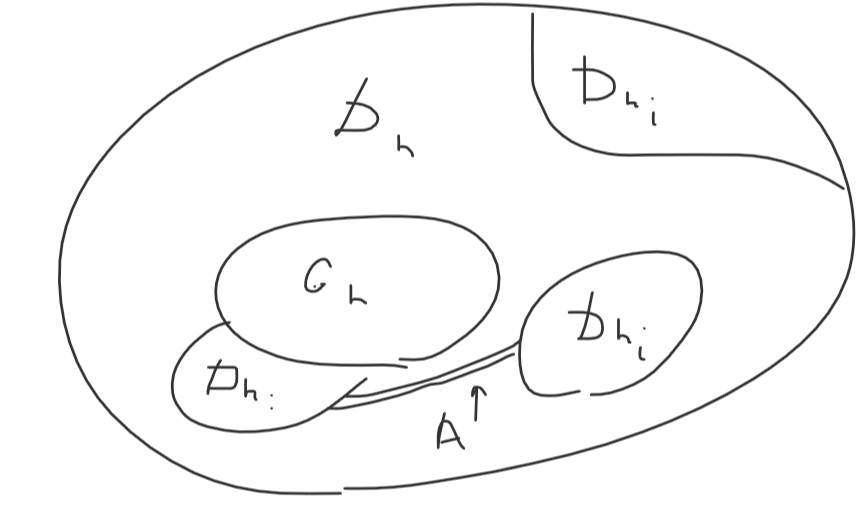 D h i
D h
C h
D h i
D h i
A ↑